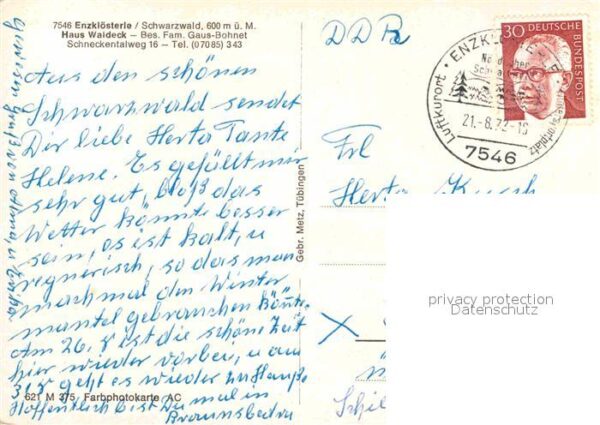 7546 Enzklösterle / Schwarzwald, 600 m ü. M.
Haus Waldeck – Bes. Fam. Gaus-Bohnet
Schneckentalweg 16 – Tel. (07085) 343
Aus den schönen
Schwarzwald sendet
Dir liebe Herta Tante
Helene. Es gefällt mir
sehr gut, bloß das
Wetter könnte besser
sein, es ist kalt, u
regnerisch, so das man
machmal den Winter
mantel gebrauchen könnte.
Am 26. 8 ist die schöne Zeit
hier wieder vorbei, u am
31.8 geht es wieder zu Hauße
Hoffentlich bist Du mal in
Braunsbedra
Gruß von
621 M 375 Farbphotokarte AC
Gebr. Metz, Tübingen
DDR
Frl
Herta
X
30 DEUTSCHE BUNDESPOST
Luftkurort · ENZKL
21.-8.72-
7546
privacy protection
Datenschutz